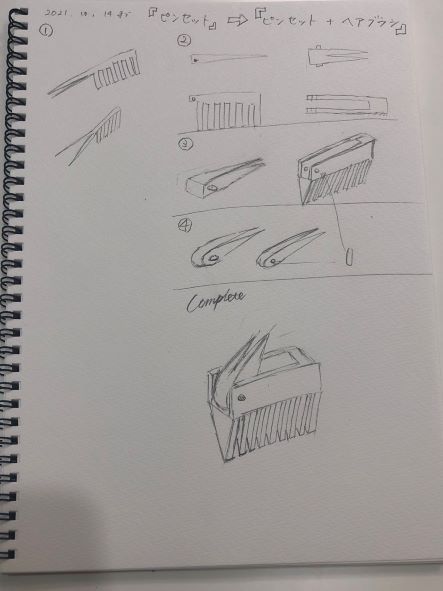 2021. 10. 19 『ピンセット』 ⇨ 『ピンセット + ヘアブラシ』
①
②
③
④
Complete